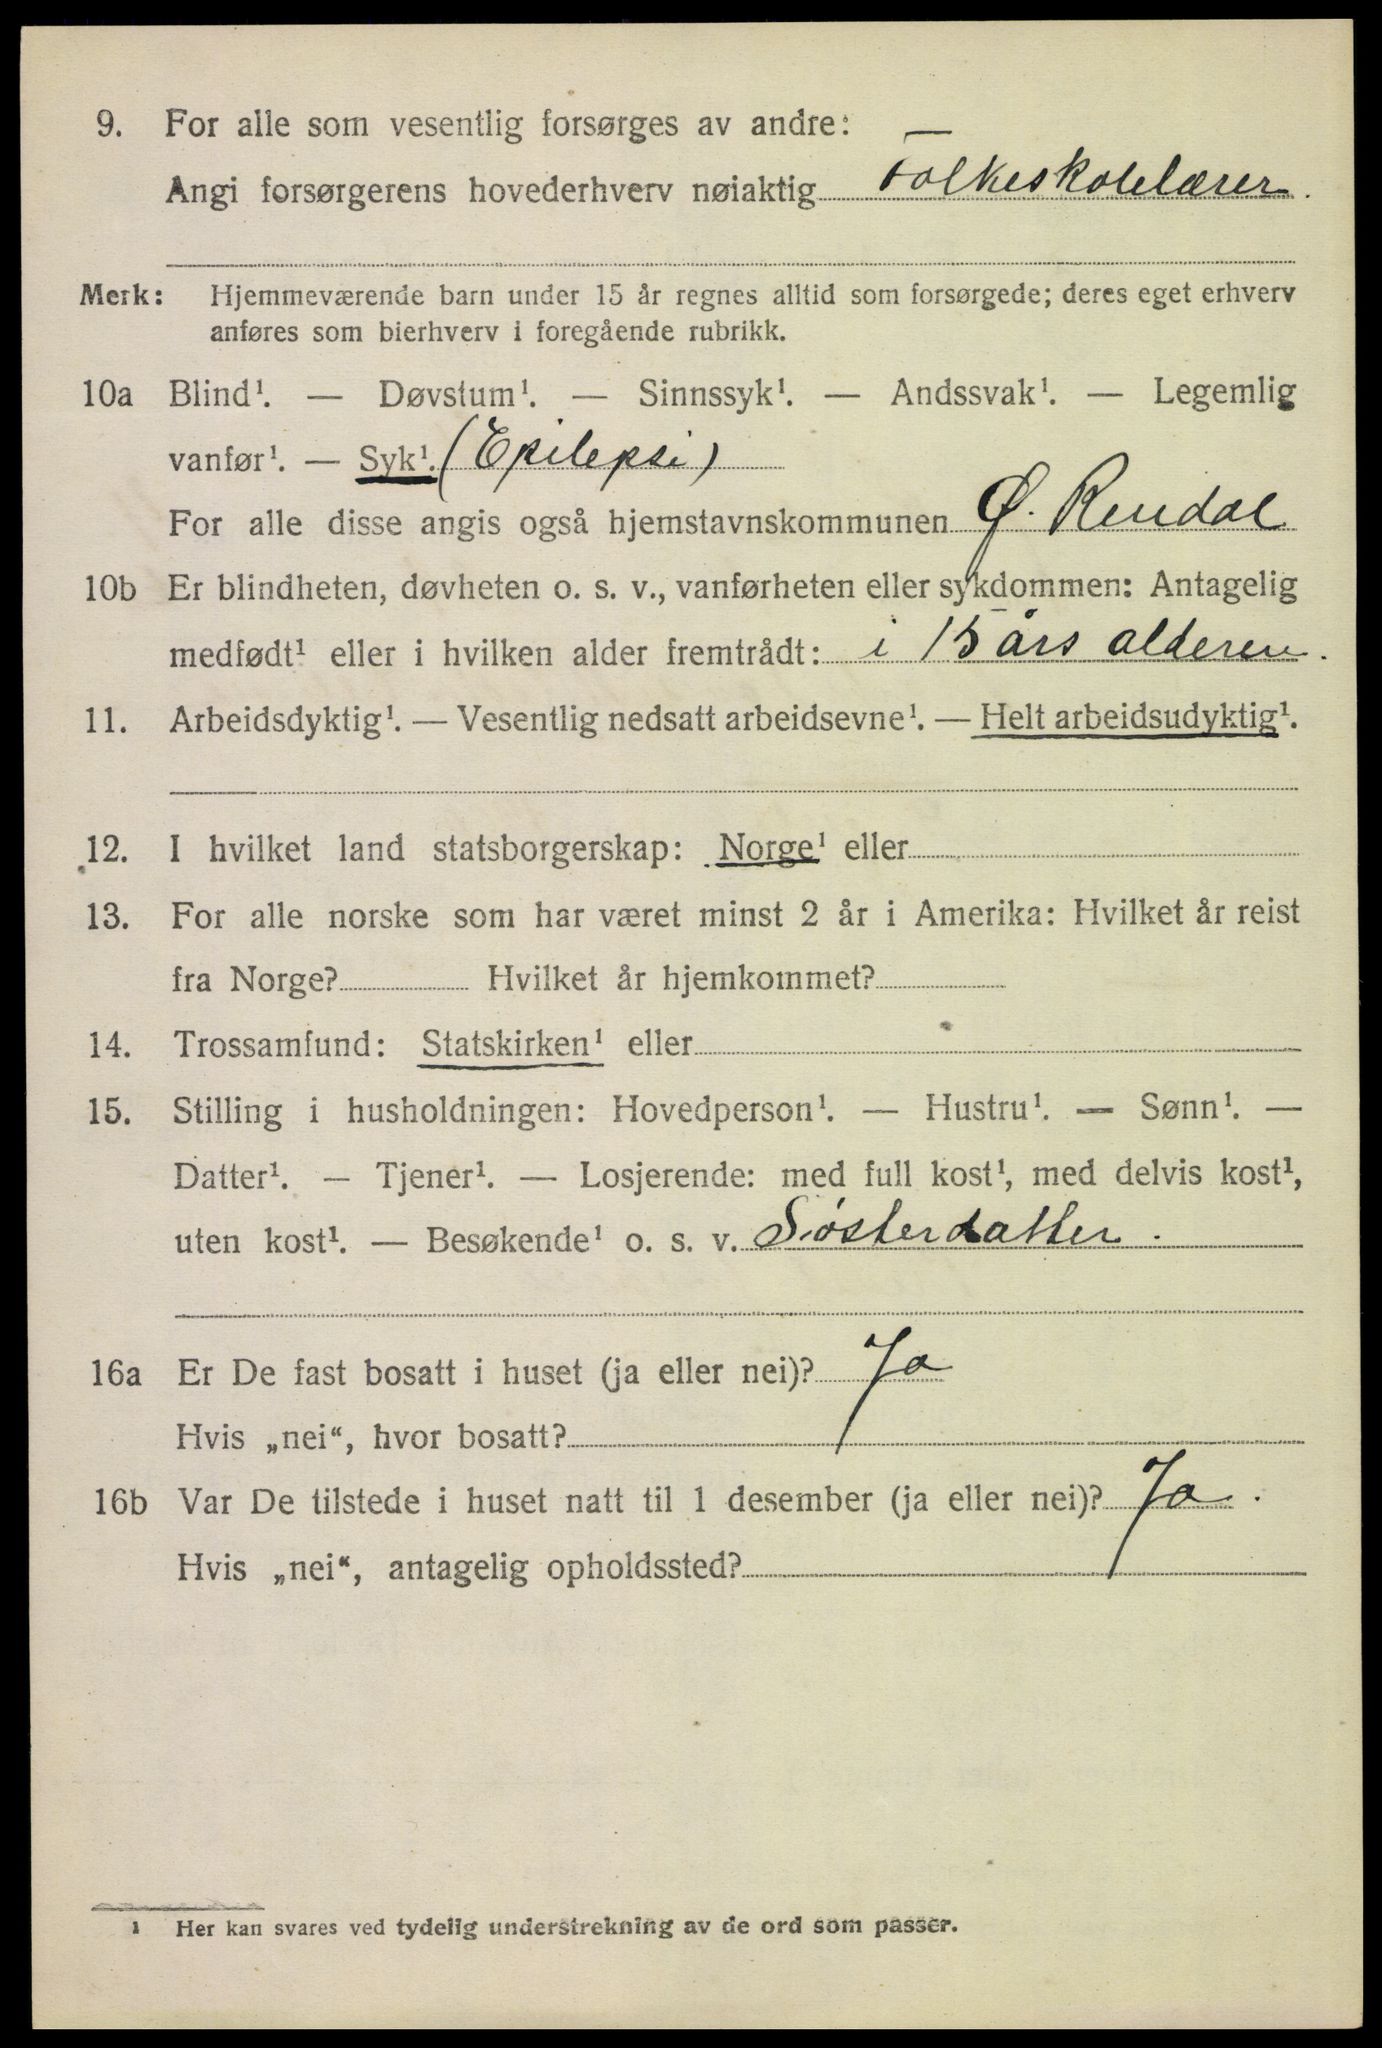 9. For alle som vesentlig forsørges av andre:
Angi forsørgerens hovederhverv nøiaktig Folkeskolelærer.
Merk: Hjemmeværende barn under 15 år regnes alltid som forsørgede; deres eget erhverv
anføres som bierhverv i foregående rubrikk.
10a Blind¹. — Døvstum¹. — Sinnssyk¹. — Andssvak¹. — Legemlig
vanfør¹. — Syk¹. (Epilepsi)
For alle disse angis også hjemstavnskommunen Ø. Rendal
10b Er blindheten, døvheten o. s. v., vanførheten eller sykdommen: Antagelig
medfødt¹ eller i hvilken alder fremtrådt: i 15 års alderen.
11. Arbeidsdyktig¹. — Vesentlig nedsatt arbeidsevne¹. — Helt arbeidsudyktig¹.
12. I hvilket land statsborgerskap: Norge¹ eller
13. For alle norske som har været minst 2 år i Amerika: Hvilket år reist
fra Norge? Hvilket år hjemkommet?
14. Trossamfund: Statskirken¹ eller
15. Stilling i husholdningen: Hovedperson¹. — Hustru¹. — Sønn¹. —
Datter¹. — Tjener¹. — Losjerende: med full kost¹, med delvis kost¹,
uten kost¹. — Besøkende¹ o. s. v. Søsterdatter.
16a Er De fast bosatt i huset (ja eller nei)? Ja
Hvis „nei“, hvor bosatt?
16b Var De tilstede i huset natt til 1 desember (ja eller nei)? Ja.
Hvis „nei“, antagelig opholdssted?
1 Her kan svares ved tydelig understrekning av de ord som passer.